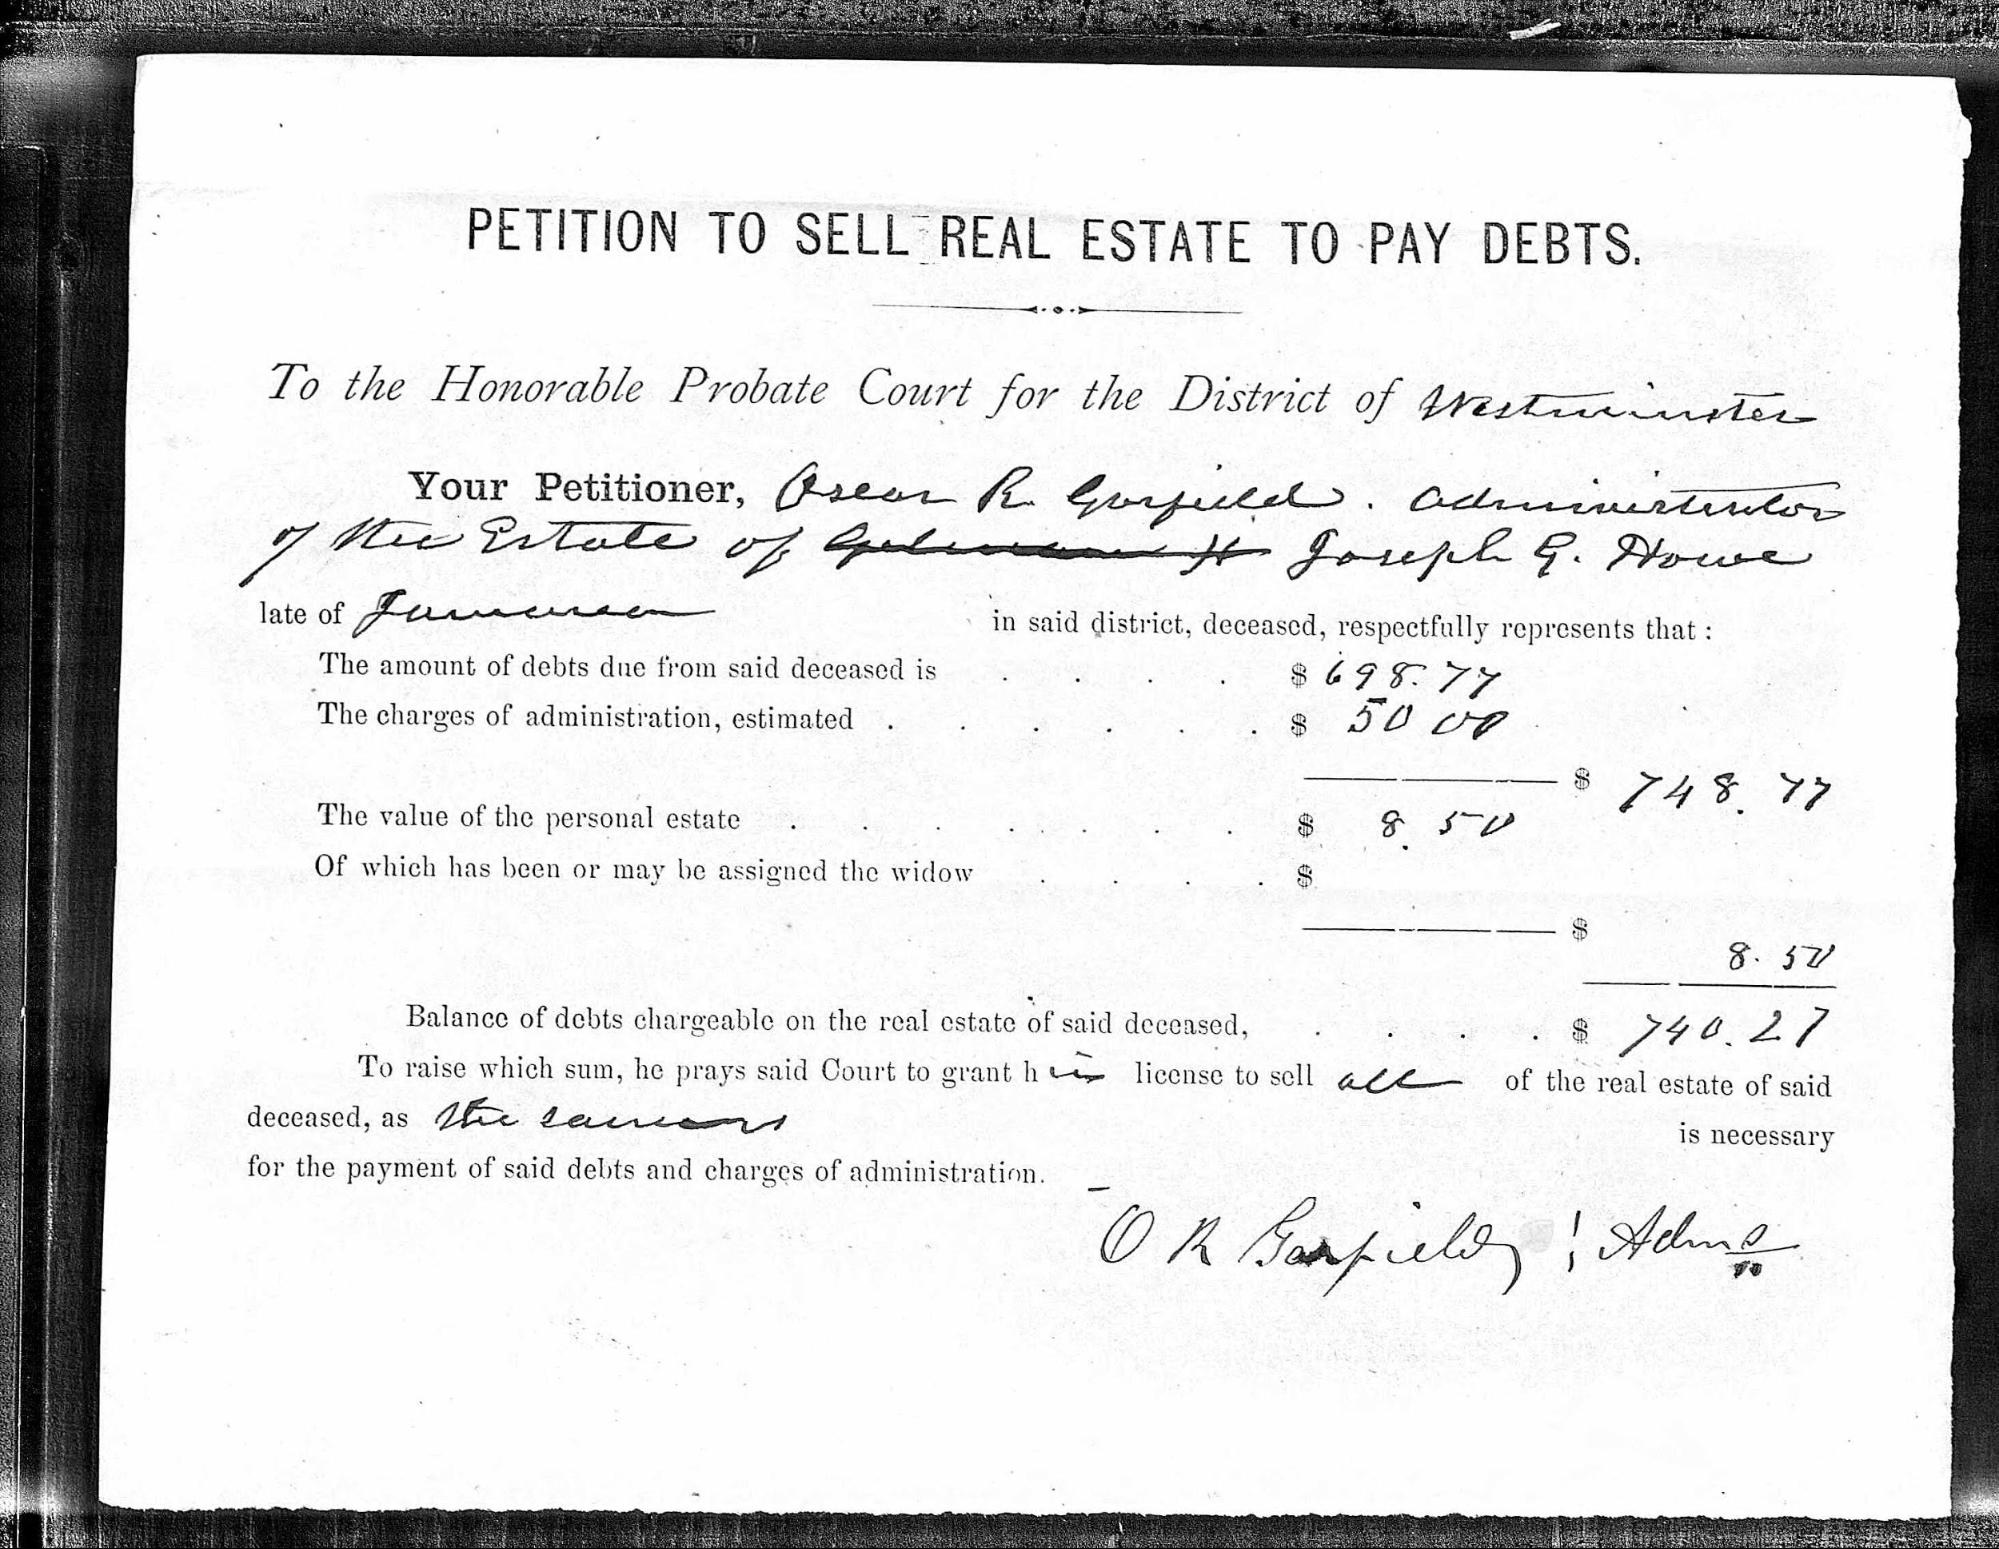 PETITION TO SELL REAL ESTATE TO PAY DEBTS.
To the Honorable Probate Court for the District of Westminster
Your Petitioner, Oscar R. Garfield. Administrator
of the Estate of Joseph G. Howe
late of Jamaica in said district, deceased, respectfully represents that :
The amount of debts due from said deceased is . . . . $ 698.77
The charges of administration, estimated . . . . . . $ 50 00
$ 748.77
The value of the personal estate . . . . . . . $ 8.50
Of which has been or may be assigned the widow . . . . $
$
8.50
Balance of debts chargeable on the real estate of said deceased, . . . . $ 740.27
To raise which sum, he prays said Court to grant him license to sell all of the real estate of said
deceased, as the same is necessary
for the payment of said debts and charges of administration.
O R Garfield, Admr